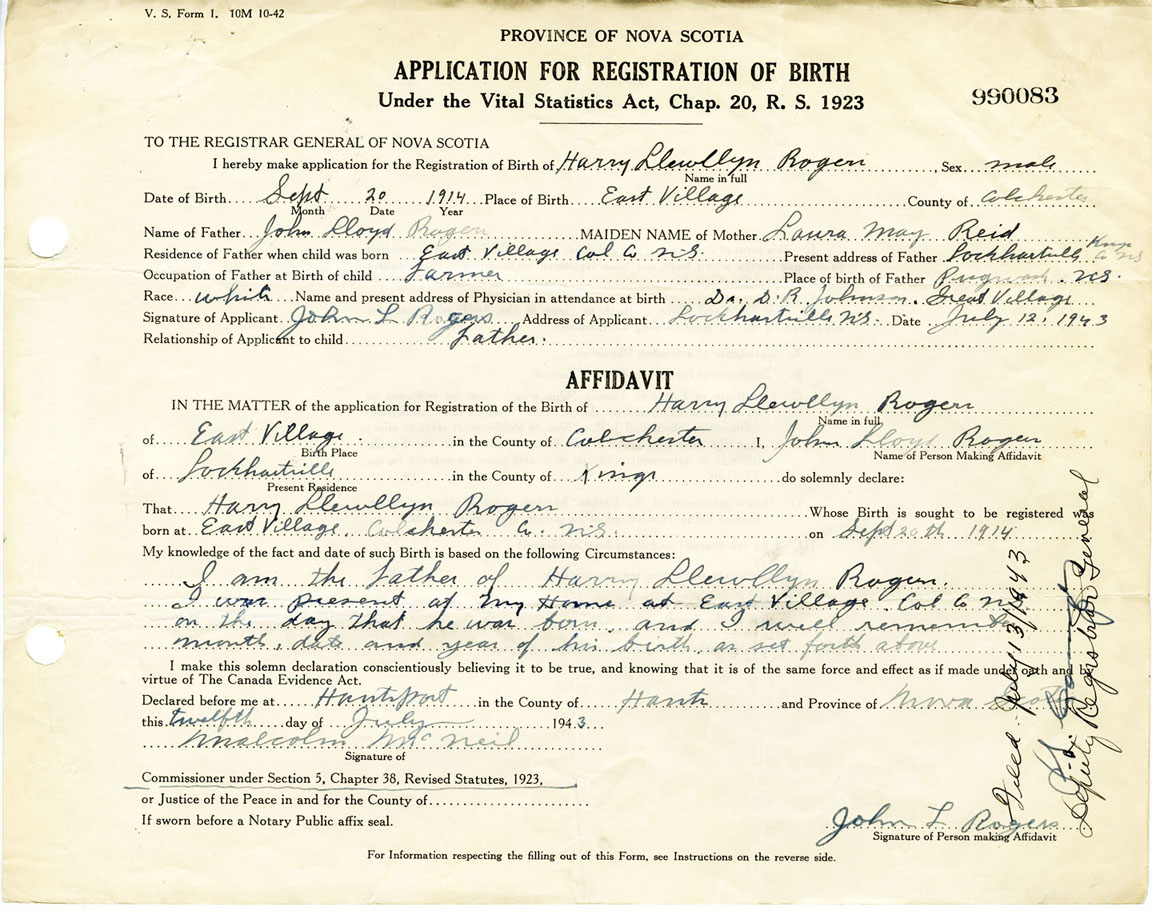 V. S. Form 1. 10M 10-42
PROVINCE OF NOVA SCOTIA
APPLICATION FOR REGISTRATION OF BIRTH
Under the Vital Statistics Act, Chap. 20, R. S. 1923
990083
TO THE REGISTRAR GENERAL OF NOVA SCOTIA
I hereby make application for the Registration of Birth of Harry Llewllyn Rogers, Sex male
Name in full
Date of Birth Sept 20 1914 Place of Birth East Village County of Colchester
Month Date Year
Name of Father John Lloyd Rogers MAIDEN NAME of Mother Laura May Reid
Residence of Father when child was born East Village Col Co N.S. Present address of Father Lockhartville Kings Co NS
Occupation of Father at Birth of child Farmer Place of birth of Father Pugwash N.S.
Race white Name and present address of Physician in attendance at birth Dr. D. R. Johnson. Great Village
Signature of Applicant John L Rogers Address of Applicant Lockhartville N.S. Date July 12, 1943
Relationship of Applicant to child Father.
AFFIDAVIT
IN THE MATTER of the application for Registration of the Birth of Harry Llewllyn Rogers
Name in full
of East Village in the County of Colchester I, John Lloyd Rogers
Birth Place Name of Person Making Affidavit
of Lockhartville in the County of Kings do solemnly declare:
Present Residence
That Harry Llewllyn Rogers Whose Birth is sought to be registered was
born at East Village, Colchester Co. N.S. on Sept 20th 1914
My knowledge of the fact and date of such Birth is based on the following Circumstances:
I am the father of Harry Llewllyn Rogers.
I was present at my Home at East Village Col Co N.S.
on the day that he was born, and I will remember
month, date and year of his birth as set forth above
I make this solemn declaration conscientiously believing it to be true, and knowing that it is of the same force and effect as if made under oath and by
virtue of The Canada Evidence Act.
Declared before me at Hantsport in the County of Hants and Province of Nova Scotia
this twelfth day of July 1943
Malcolm McNeil
Signature of
Commissioner under Section 5, Chapter 38, Revised Statutes, 1923,
or Justice of the Peace in and for the County of
If sworn before a Notary Public affix seal.
John L Rogers
Signature of Person making Affidavit
For Information respecting the filling out of this Form, see Instructions on the reverse side.
Filed July 13/1943
Deputy Registrar General